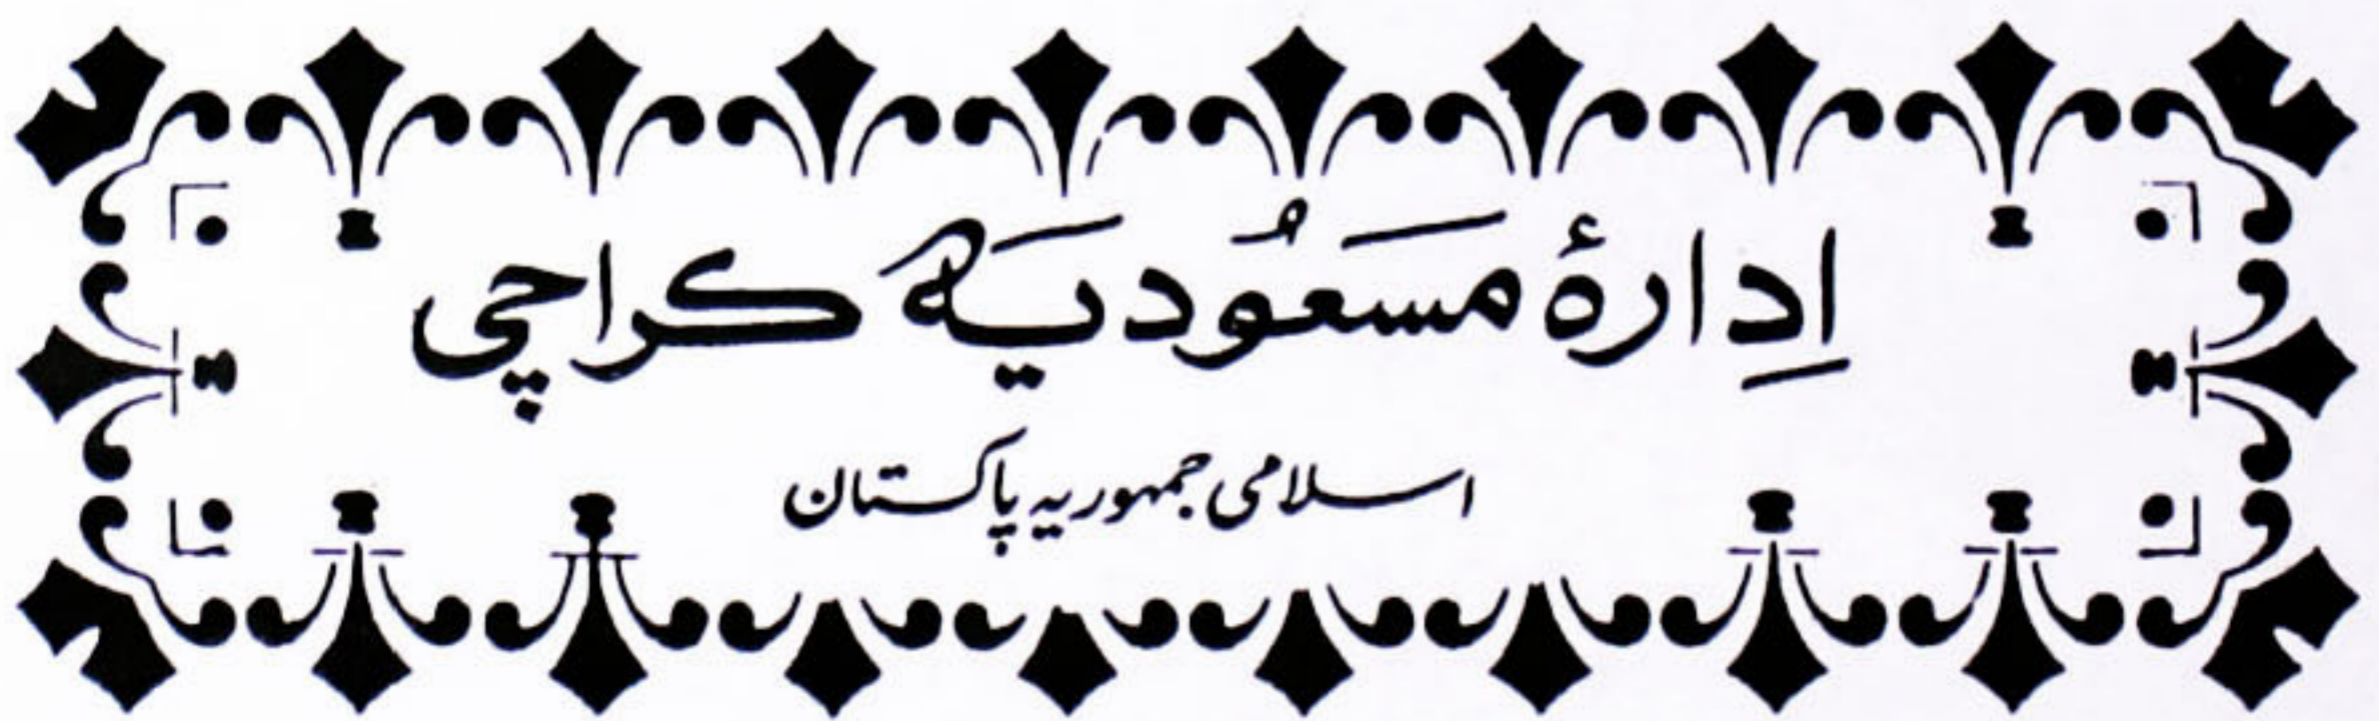 اِدارۂ مَسعُودیَہ کراچی
اسلامی جمہوریہ پاکستان